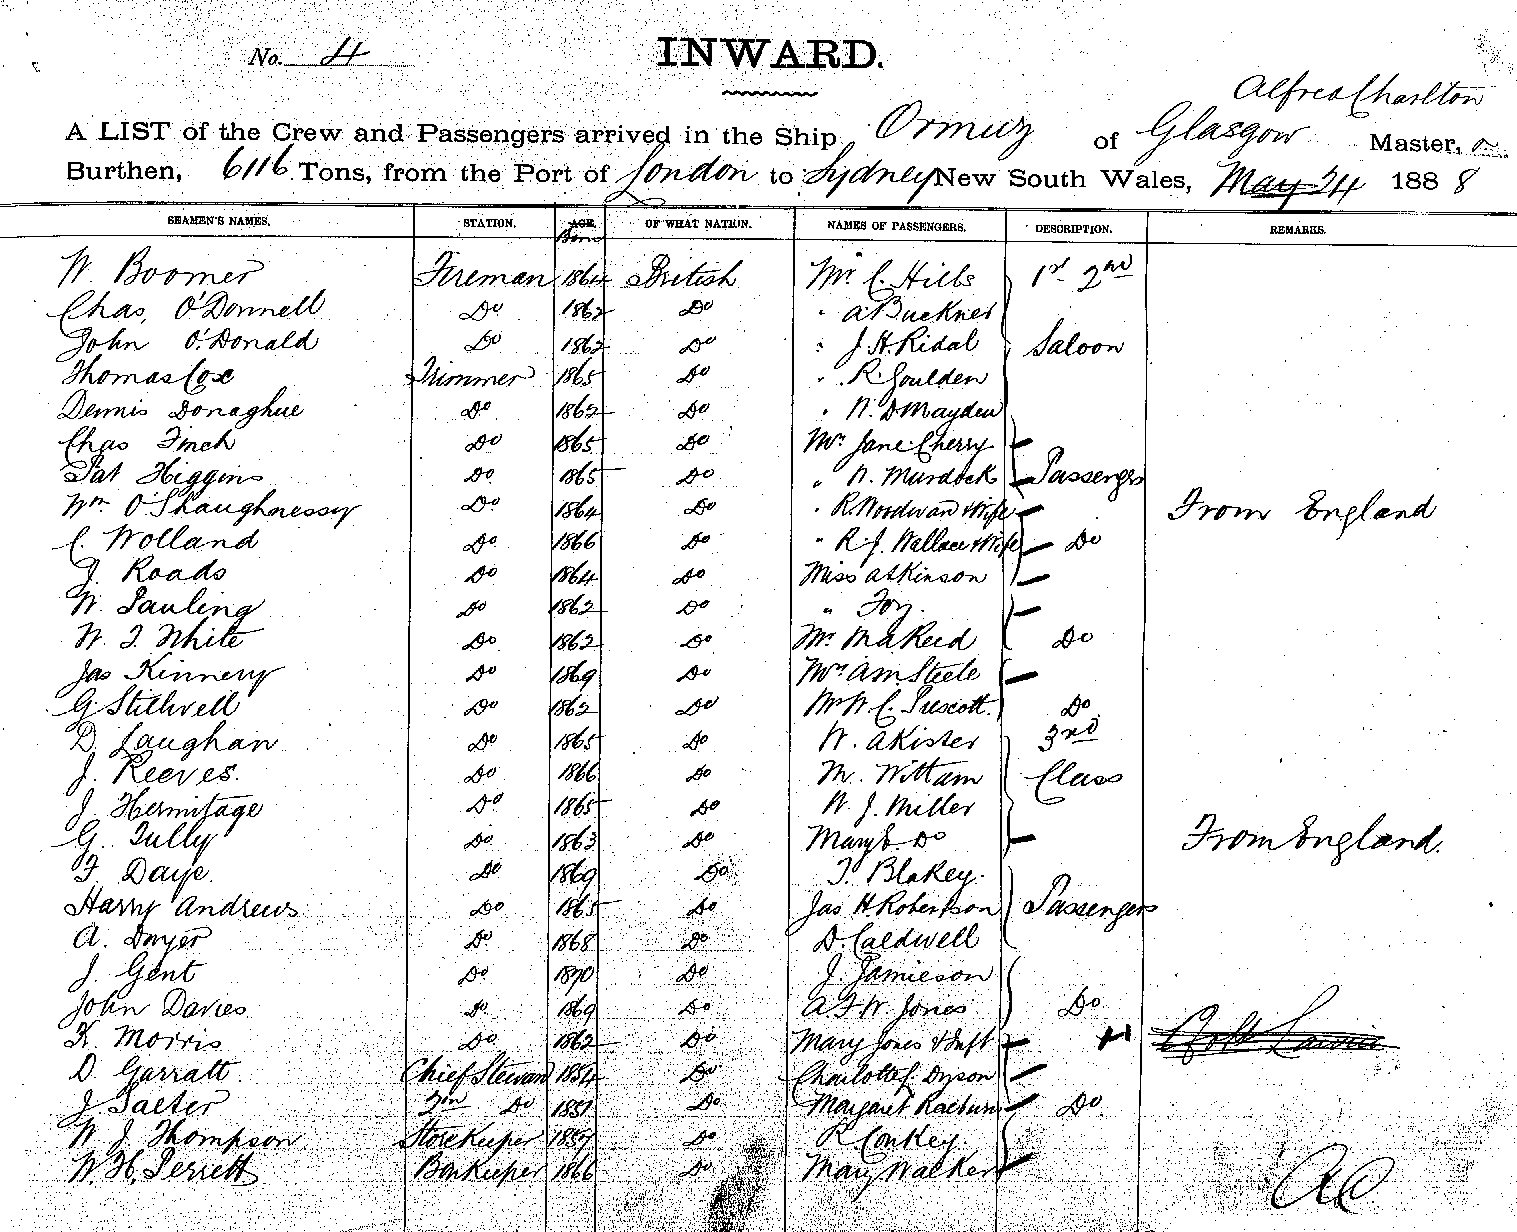 No. 4
INWARD.
Alfred Charlton
A LIST of the Crew and Passengers arrived in the Ship Ormuz of Glasgow Master,
Burthen, 6116 Tons, from the Port of London to Sydney New South Wales, May 24 1888
SEAMEN'S NAMES. STATION. AGE. OF WHAT NATION. NAMES OF PASSENGERS. DESCRIPTION. REMARKS.
Born
W. Boomer Fireman 1864 British Mr C. Hills 1st 2nd
Chas. O'Donnell Do 1862 Do " A Buckner
John O'Donald Do 1862 Do " J. H. Ridal Saloon
Thomas Cox Trimmer 1865 Do " R. Goulden
Dennis Donaghue Do 1862 Do " N. D Mayden
Chas Finch Do 1865 Do Mrs Jane Cherry
Pat Higgins Do 1865 Do " N. Murdock Passengers
Wm O'Shaughnessy Do 1864 Do " R. Woodward & Wife From England
C. Wolland Do 1866 Do " R. J. Wallace & Wife Do
J. Roads Do 1864 Do Miss Atkinson
W. Pauling Do 1862 Do " Foy.
W. T. White Do 1862 Do Mr Reid Do
Jas Kinnery Do 1869 Do Mrs Am. Steele
G. Stillwell Do 1862 Do Mr W. C. Prescott. Do
D. Laughan Do 1865 Do W. Akister 3rd
J. Reeves. Do 1866 Do M. Wittam Class
J. Hermitage Do 1865 Do W. J. Miller
G. Tully Do 1863 Do Mary E. Do From England.
F. Daye. Do 1869 Do T. Blakey.
Harry Andrews Do 1865 Do Jas H. Robertson Passengers
A. Dwyer Do 1868 Do D. Caldwell
J. Gent Do 1870 Do J. Jamieson
John Davies Do 1869 Do A. F. W. Jones Do
K. Morris Do 1862 Do Mary Jones & Inft
D. Garratt Chief Steward 1854 Do Charlotte C. Dyson
J. Salter 2nd Do 1857 Do Margaret Raeburn Do
W. J. Thompson Storekeeper 1857 Do R. Conkey.
W. H. Perrett Barkeeper 1866 Do Mary Walker
AC